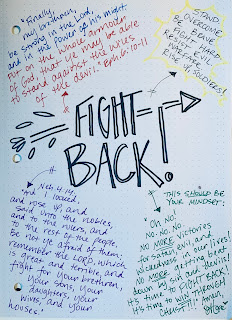 "Finally,
my brethren,
be strong in the Lord,
and in the power of his might.
Put on the whole armour
of God, that ye may be able
to stand against the wiles
of the devil." Eph. 6:10-11
STAND.
BE WISE.
BE BRAVE.
FIGHT HARD.
RESIST EVIL.
WIN.
FIGHT
BACK!
Neh. 4:14
"And I looked,
and rose up, and
said unto the nobles,
and to the rulers, and
to the rest of the people,
Be not ye afraid of them;
remember the LORD, which
is great and terrible, and
fight for your brethren,
your sons, your
daughters, your
wives, and your
houses."
THIS SHOULD BE
YOUR MINDSET:
"Oh No!
No. No. No.
NO MORE victories
for satan, evil, and
wickedness in our lives!
NO MORE getting beat
down by demons!
It's time to FIGHT BACK!
It's time to WIN THROUGH
CHRIST!!!" Amen.